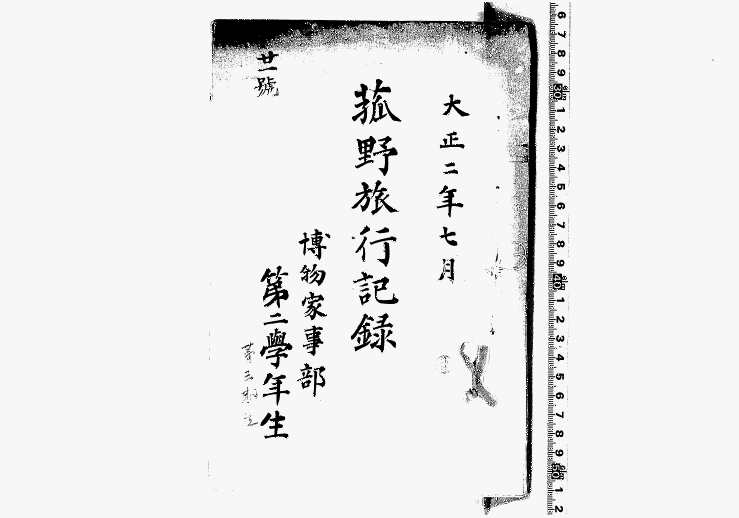 大正二年七月
菰野旅行記録
博物家事部
第二學年生
第三期生
廿一號
6 7 8 9 30 1 2 3 4 5 6 7 8 9 40 1 2 3 4 5 6 7 8 9 50 1 2